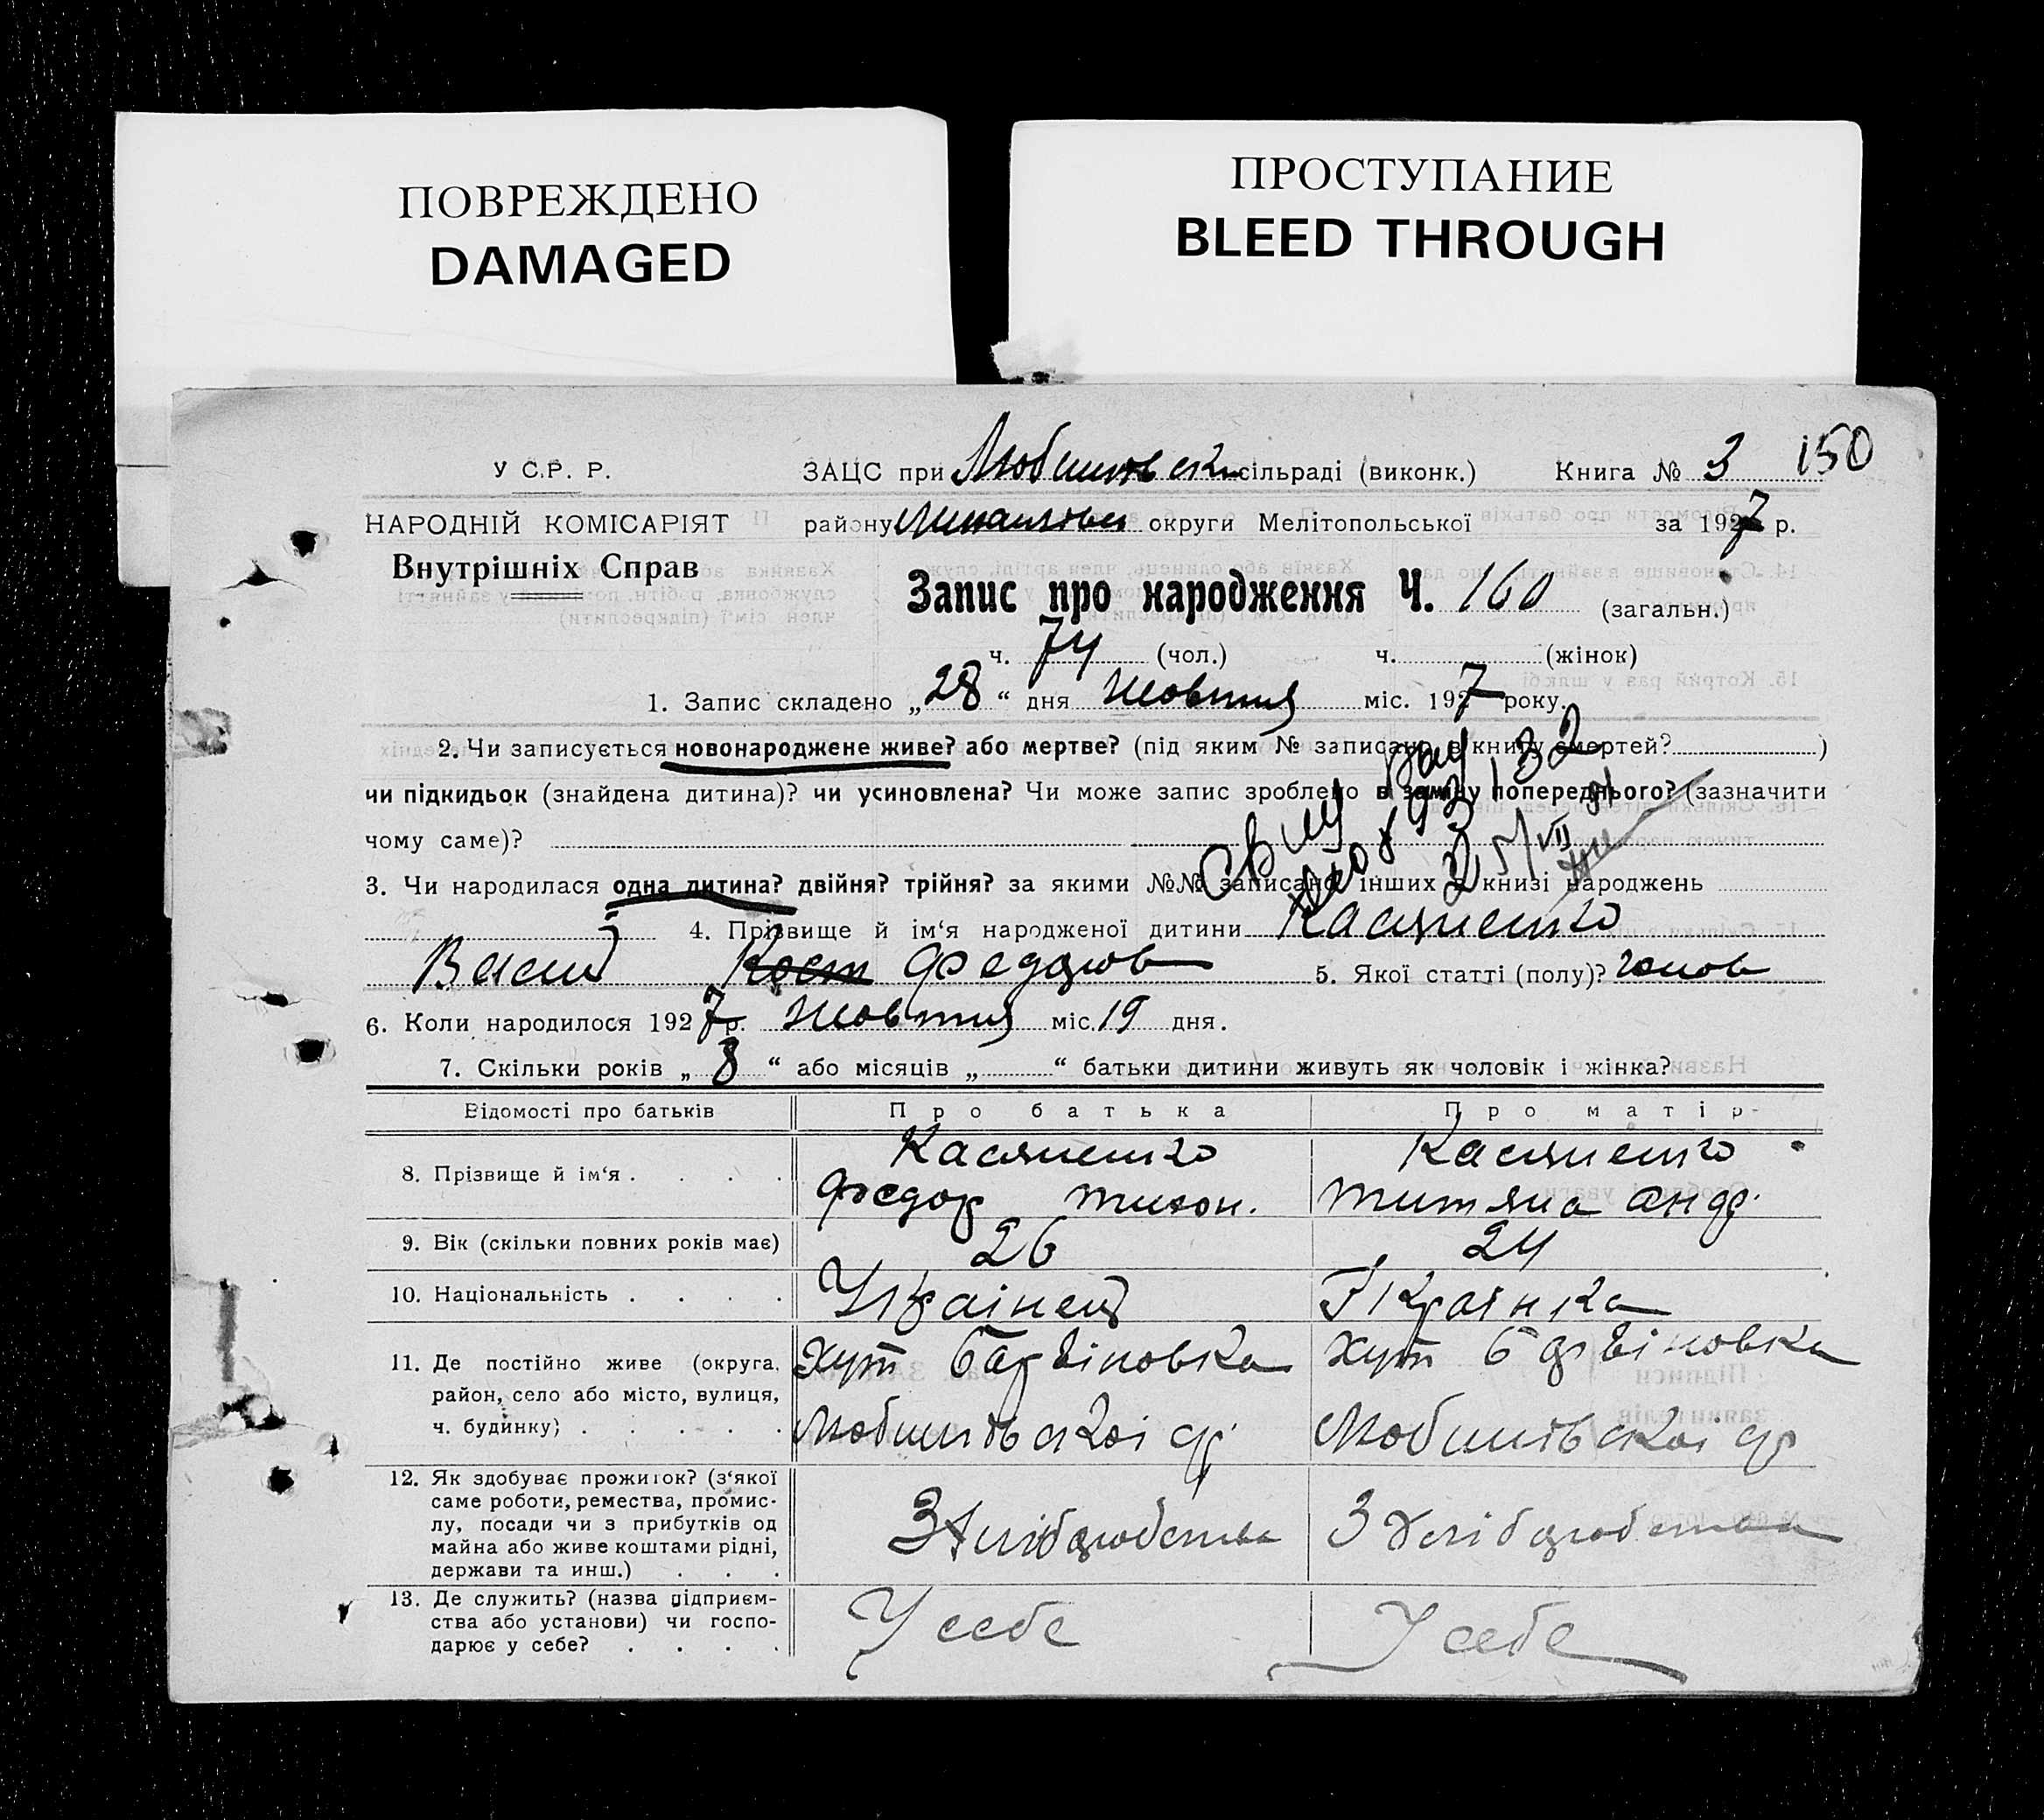 ПОВРЕЖДЕНО
DAMAGED
ПРОСТУПАНИЕ
BLEED THROUGH
У С.Р. Р. ЗАЦС при сільраді (виконк.) Книга № 3 150
НАРОДНІЙ КОМІСАРІЯТ району округи Мелітопольської за 1927 р.
Внутрішніх Справ
Запис про народження Ч. 160 (загальн.)
ч. 74 (чол.) ч. (жінок)
1. Запис складено „28“ дня Жовтня міс. 1927 року.
2. Чи записується новонароджене живе? або мертве? (під яким № записано в книгу смертей? )
чи підкидьок (знайдена дитина)? чи усиновлена? Чи може запис зроблено в заміну попереднього? (зазначити
чому саме)?
3. Чи народилася одна дитина? двійня? трійня? за якими №№ записано інших в книзі народжень
4. Прізвище й ім‘я народженої дитини Касяненко
Васил Кост Федоров 5. Якої статті (полу)? чолов
6. Коли народилося 1927 р. Жовтня міс. 19 дня.
7. Скільки років „8“ або місяців „ “ батьки дитини живуть як чоловік і жінка?
Відомості про батьків Про батька Про матір
8. Прізвище й ім‘я . Касяненко Федор Тихон. Касяненко Титяна Андр.
9. Вік (скільки повних років має) 26 24
10. Національність . Українец Українка
11. Де постійно живе (округа, район, село або місто, вулиця, ч. будинку) . Хут Барвіновка Хут Барвіновка
12. Як здобуває прожиток? (з‘якої саме роботи, ремества, промислу, посади чи з прибутків од майна або живе коштами рідні, держави та инш.) . З Хліборобства З Хліборобства
13. Де служить? (назва підприємства або установи) чи господарює у себе? . У себе У себе